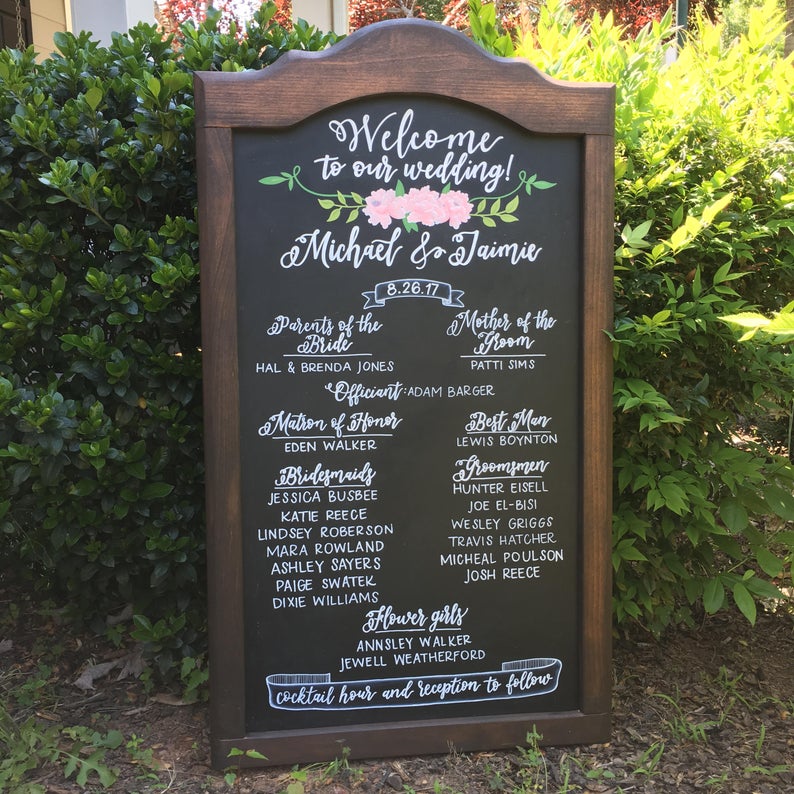 Welcome
to our wedding!
Michael & Jaimie
8.26.17
Parents of the
Bride
HAL & BRENDA JONES
Mother of the
Groom
PATTI SIMS
Officiant: ADAM BARGER
Matron of Honor
EDEN WALKER
Best Man
LEWIS BOYNTON
Bridesmaids
JESSICA BUSBEE
KATIE REECE
LINDSEY ROBERSON
MARA ROWLAND
ASHLEY SAYERS
PAIGE SWATEK
DIXIE WILLIAMS
Groomsmen
HUNTER EISELL
JOE EL-BISI
WESLEY GRIGGS
TRAVIS HATCHER
MICHEAL POULSON
JOSH REECE
Flower girls
ANNSLEY WALKER
JEWELL WEATHERFORD
cocktail hour and reception to follow